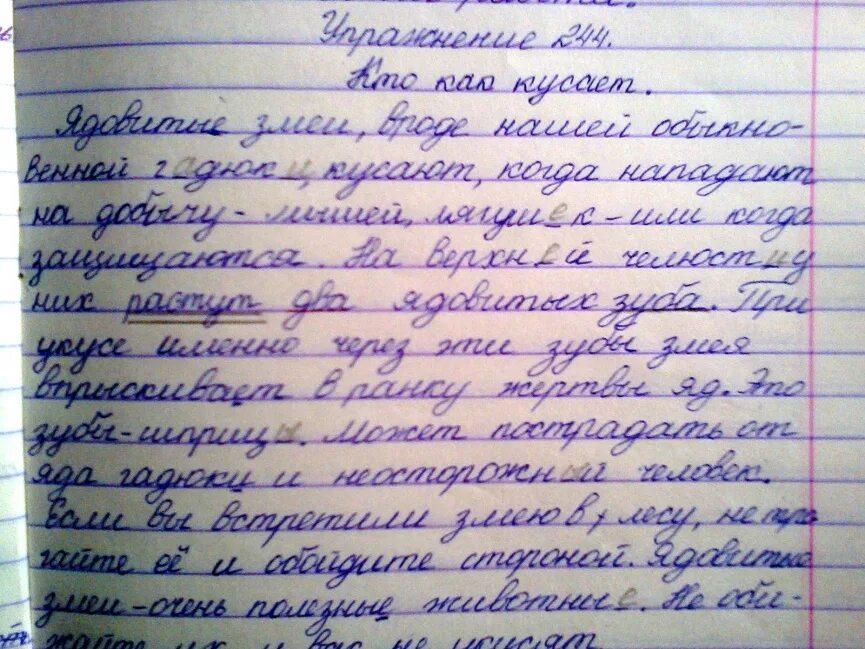 Упражнение 244.
Кто как кусает.
Ядовитые змеи, вроде нашей обыкно-
венной гадюки, кусают, когда нападают
на добычу - мышей, лягушек - или когда
защищаются. На верхней челюсти у
них растут два ядовитых зуба. При
укусе именно через эти зубы змея
впрыскивает в ранку жертвы яд. Это
зубы-шприцы. Может пострадать от
яда гадюки и неосторожный человек.
Если вы встретили змею в лесу, не тро-
гайте её и обойдите стороной. Ядовитые
змеи - очень полезные животные. Не оби-
жайте их и вас не укусят